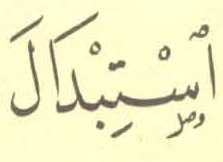 أسْتِبْدَالَ
وصل